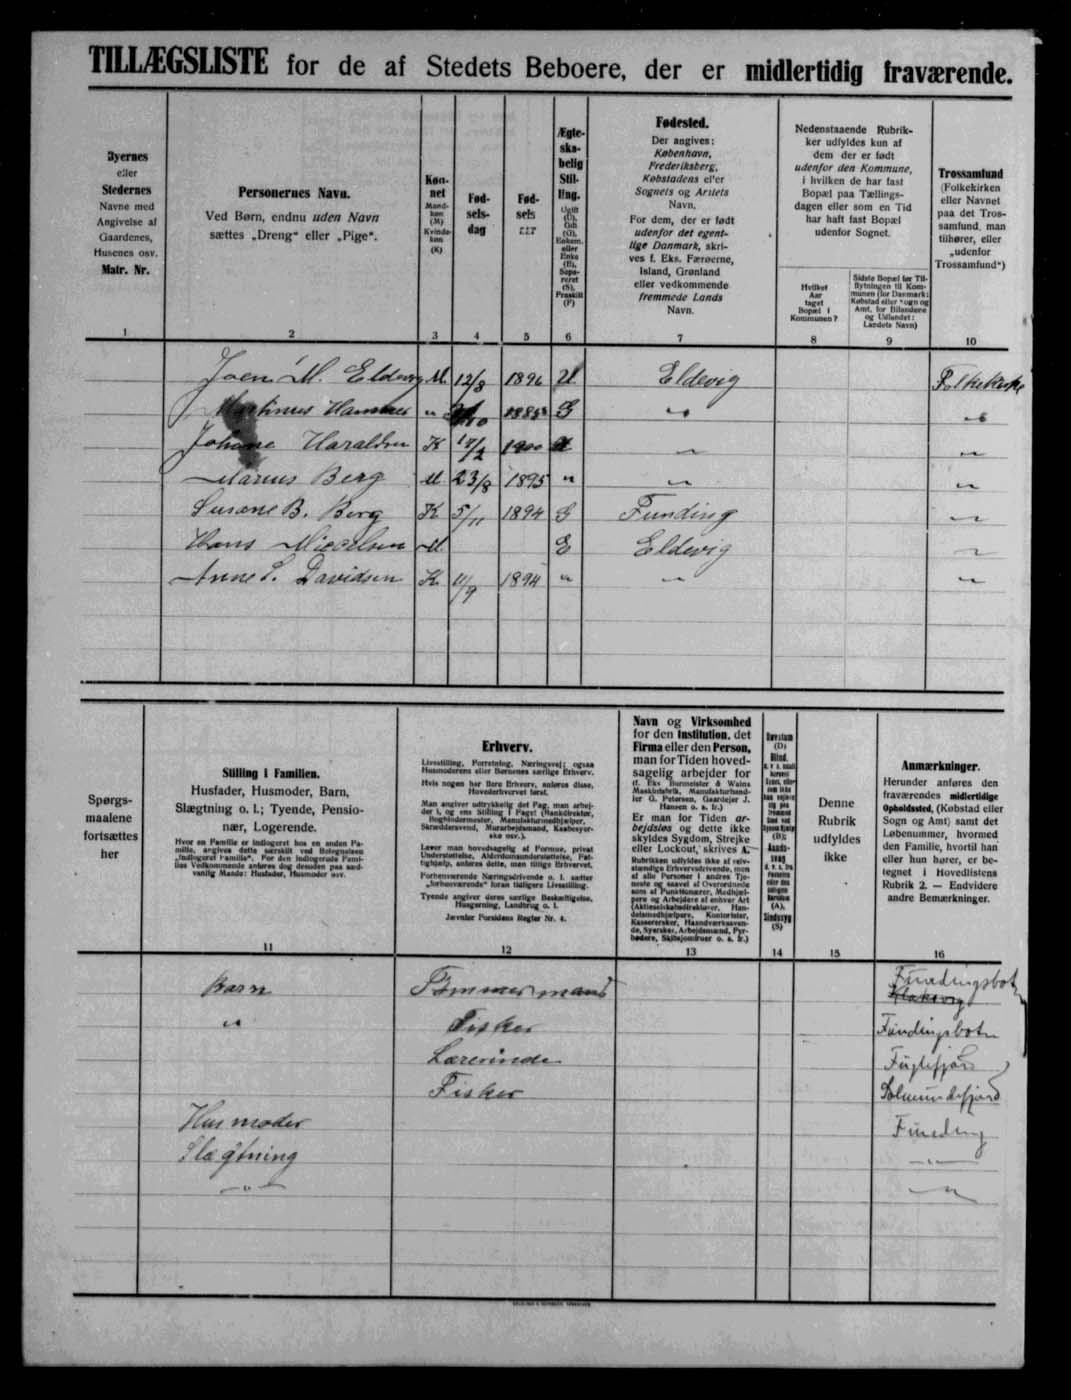 TILLÆGSLISTE for de af Stedets Beboere, der er midlertidig fraværende.
Byernes
eller
Stedernes
Navne med
Angivelse af
Gaardenes,
Husenes osv.
Matr. Nr.
1
Personernes Navn.
Ved Børn, endnu uden Navn
sættes „Dreng“ eller „Pige“.
2
Køn-
net
Mand-
køn
(M)
Kvinde-
køn
(K)
3
Fød-
sels-
dag
4
Fød-
sels
5
Ægte-
ska-
belig
Stil-
ling.
Ugift
(U),
Gift
(G),
Enkem.
eller
Enke
(E),
Sepa-
reret
(S),
Fraskilt
(F)
6
Fødested.
Der angives:
København,
Frederiksberg,
Købstadens eller
Sognets og Amtets
Navn.
For dem, der er født
udenfor det egent-
lige Danmark, skri-
ves f. Eks. Færøerne,
Island, Grønland
eller vedkommende
fremmede Lands
Navn.
7
Nedenstaaende Rubrik-
ker udfyldes kun af
dem der er født
udenfor den Kommune,
i hvilken de har fast
Bopæl paa Tællings-
dagen eller som en Tid
har haft fast Bopæl
udenfor Sognet.
Hvilket
Aar
taget
Bopæl i
Kommunen?
8
Sidste Bopæl før Til-
flytningen til Kom-
munen (for Danmark:
Købstad eller Sogn og
Amt, for Bilandene
og Udlandet:
Landets Navn)
9
Trossamfund
(Folkekirken
eller Navnet
paa det Tros-
samfund, man
tilhører, eller
„udenfor
Trossamfund“)
10
Joen M. Eldevig M. 12/8 1896 U Eldevig Folkekirke
Martinus Hammer " 1885 G " "
Johanne Haraldsen K 1900 " "
Marius Berg M. 23/8 1895 " " "
Susane B. Berg K 5/11 1894 G Funding "
Hans Micelsen M. E Eldevig "
Anne S. Davidsen K. 11/9 1894 " " "
Spørgs-
maalene
fortsættes
her
Stilling i Familien.
Husfader, Husmoder, Barn,
Slægtning o. l.; Tyende, Pensio-
nær, Logerende.
Hvor en Familie er indlogeret hos en anden Fa-
milie, angives dette særskilt ved Betegnelsen
„indlogeret Familie“. For den indlogerede Fami-
lies Vedkommende anføres dog desuden paa sæd-
vanlig Maade: Husfader, Husmoder osv.
11
Erhverv.
Livsstilling, Forretning, Næringsvej; ogsaa
Husmoderens eller Børnenes særlige Erhverv.
Hvis nogen har flere Erhverv, anføres disse,
Hovederhvervet først.
Man angiver udtrykkelig det Fag, man arbej-
der i, og ens Stilling i Faget (Bankdirektør,
Bogbindermester, Manufakturmedhjælper,
Skræddersvend, Murarbejdsmand, Kassbesyer-
ske osv.).
Lever man hovedsagelig af Formue, privat
Understøttelse, Alderdomsunderstøttelse, Fat-
tighjælp, anføres dette, men tillige Erhvervet.
Forhenværende Næringsdrivende o. l. sætter
„forhenværende“ foran tidligere Livsstilling.
Tyende angiver deres særlige Beskæftigelse,
Husgerning, Landbrug o. l.
Jævnfør Forsidens Regler Nr. 4.
12
Navn og Virksomhed
for den Institution, det
Firma eller den Person,
man for Tiden hoved-
sagelig arbejder for
(f. Eks Burmeister & Wains
Maskinfabrik, Manufakturhand-
ler G. Petersen, Gaardejer J.
Hansen o. s. fr.)
Er man for Tiden ar-
bejdsløs og dette ikke
skyldes Sygdom, Strejke
eller Lockout, skrives A.
Rubrikken udfyldes ikke af selv-
stændige Erhvervsdrivende, men
af alle Personer i andres Tje-
neste og saavel af Overordnede
som af Funktionærer, Medhjæl-
pere og Arbejdere af enhver Art
(Aktieselskabsdirektører, Han-
delsmedhjælpere, Kontorister,
Kasserersker, Haandværkssven-
de, Syersker, Arbejdsmænd, Fyr-
bødere, Skibsjomfruer o. s. fr.)
13
Døvstum
(D)
Blind,
(B);
Aands-
svag
(A),
Sindssyg
(S)
14
Denne
Rubrik
udfyldes
ikke
15
Anmærkninger.
Herunder anføres den
fraværendes midlertidige
Opholdssted, (Købstad eller
Sogn og Amt) samt det
Løbenummer, hvormed
den Familie, hvortil han
eller hun hører, er be-
tegnet i Hovedlistens
Rubrik 2. — Endvidere
andre Bemærkninger.
16
Barn Tømmermand Fundingsbotn
Klaksvig
" Fisker Fundingsbotn
Lærerinde Fuglefjord
Fisker Solmundefjord
Husmoder Funding
Slægtning "
" "